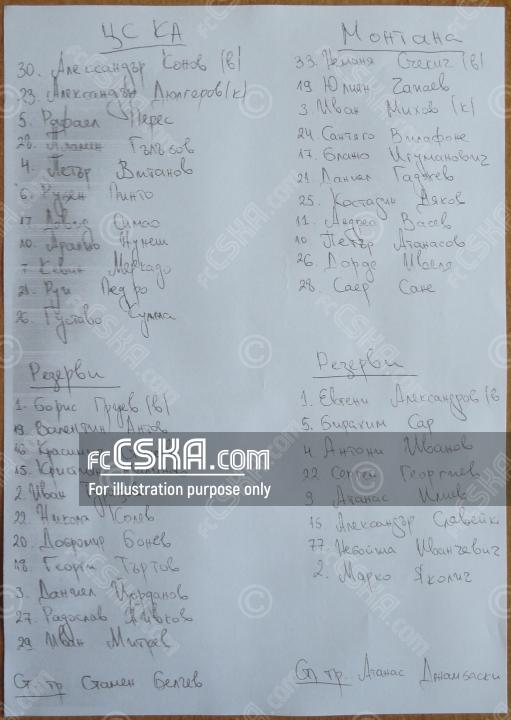 ЦСКА
30. Александър Конов (в)
23. Александър Дюлгеров (к)
5. Рафаел Перес
28. Пламен Гълъбов
4. Петър Витанов
6. Рубен Пинто
17. Симао
10. Аралдо Нунеш
7. Кевин Меркадо
21. Руи Педро
26. Густаво Кулма
Резерви
1. Борис Груев (в)
19. Валентин Антов
16.
15. Кристиян
2. Иван
22. Никола Колев
20. Добромир Бонев
18. Георги Търтов
3. Даниел Йорданов
27. Радослав Живков
29. Иван Митрев
Ст. тр. Стамен Белчев
Монтана
33. Неманя Стекич (в)
19 Юлиян Чапаев
3. Иван Михов (к)
24. Сантяго Вилафоне
17. Блажо Игуманович
21. Даниел Гаджев
25. Костадин Дяков
11. Андреа Васев
10. Петър Атанасов
26. Дорде Ивеля
28. Саер Сане
Резерви
1. Евгени Александров (в
5. Бирахим Сар
4 Антони Иванов
22 Сергей Георгиев
9 Атанас Илиев
15 Александър Славейк
77 Небойша Иванчевич
2. Марко Яколич
Ст тр. Атанас Джамбаски
fcCSKA.com
For illustration purpose only